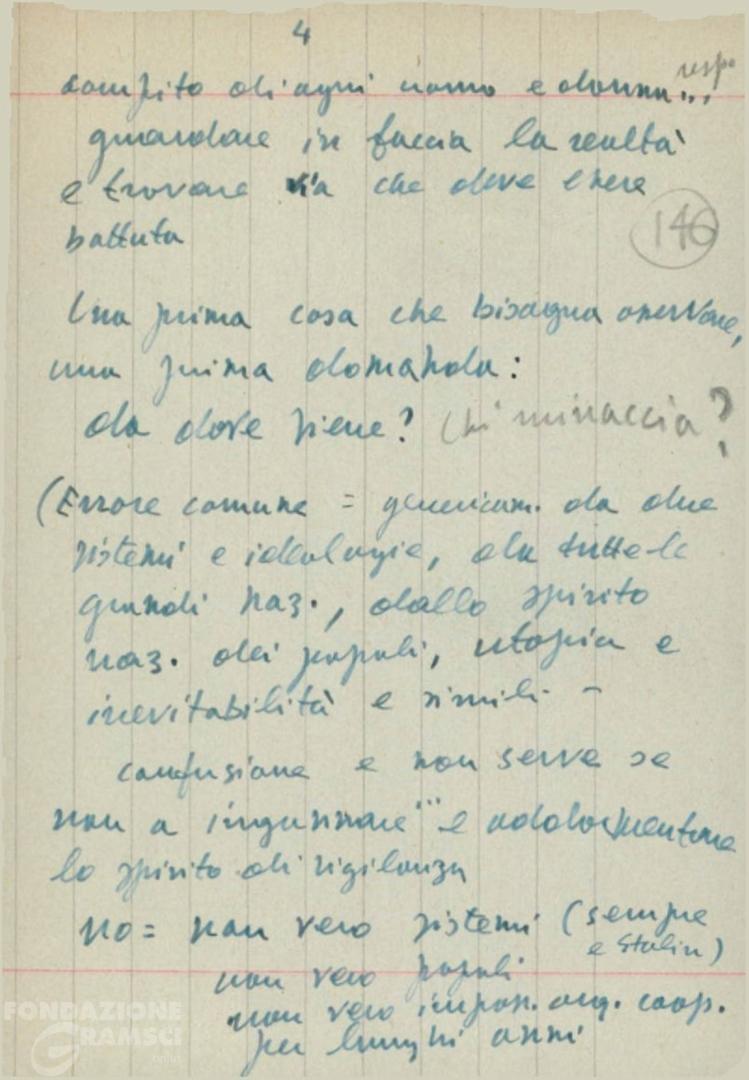 4
compito di ogni uomo e donna... resp
guardare in faccia la realtà
e trovare via che deve essere
battuta
146
Una prima cosa che bisogna osservare,
una prima domanda:
da dove viene? Chi minaccia?
(Errore comune = genericam. da due
sistemi e ideologie, da tutte le
grandi naz., dallo spirito
naz. dei popoli, utopia e
inevitabilità e simili -
confusione e non serve se
non a ingannare... e addormentare
lo spirito di vigilanza
no = non vero sistemi (sempre
e Stalin)
non vero popoli
non vero imposs. org. coop.
per lunghi anni
FONDAZIONE
GRAMSCI
onlus